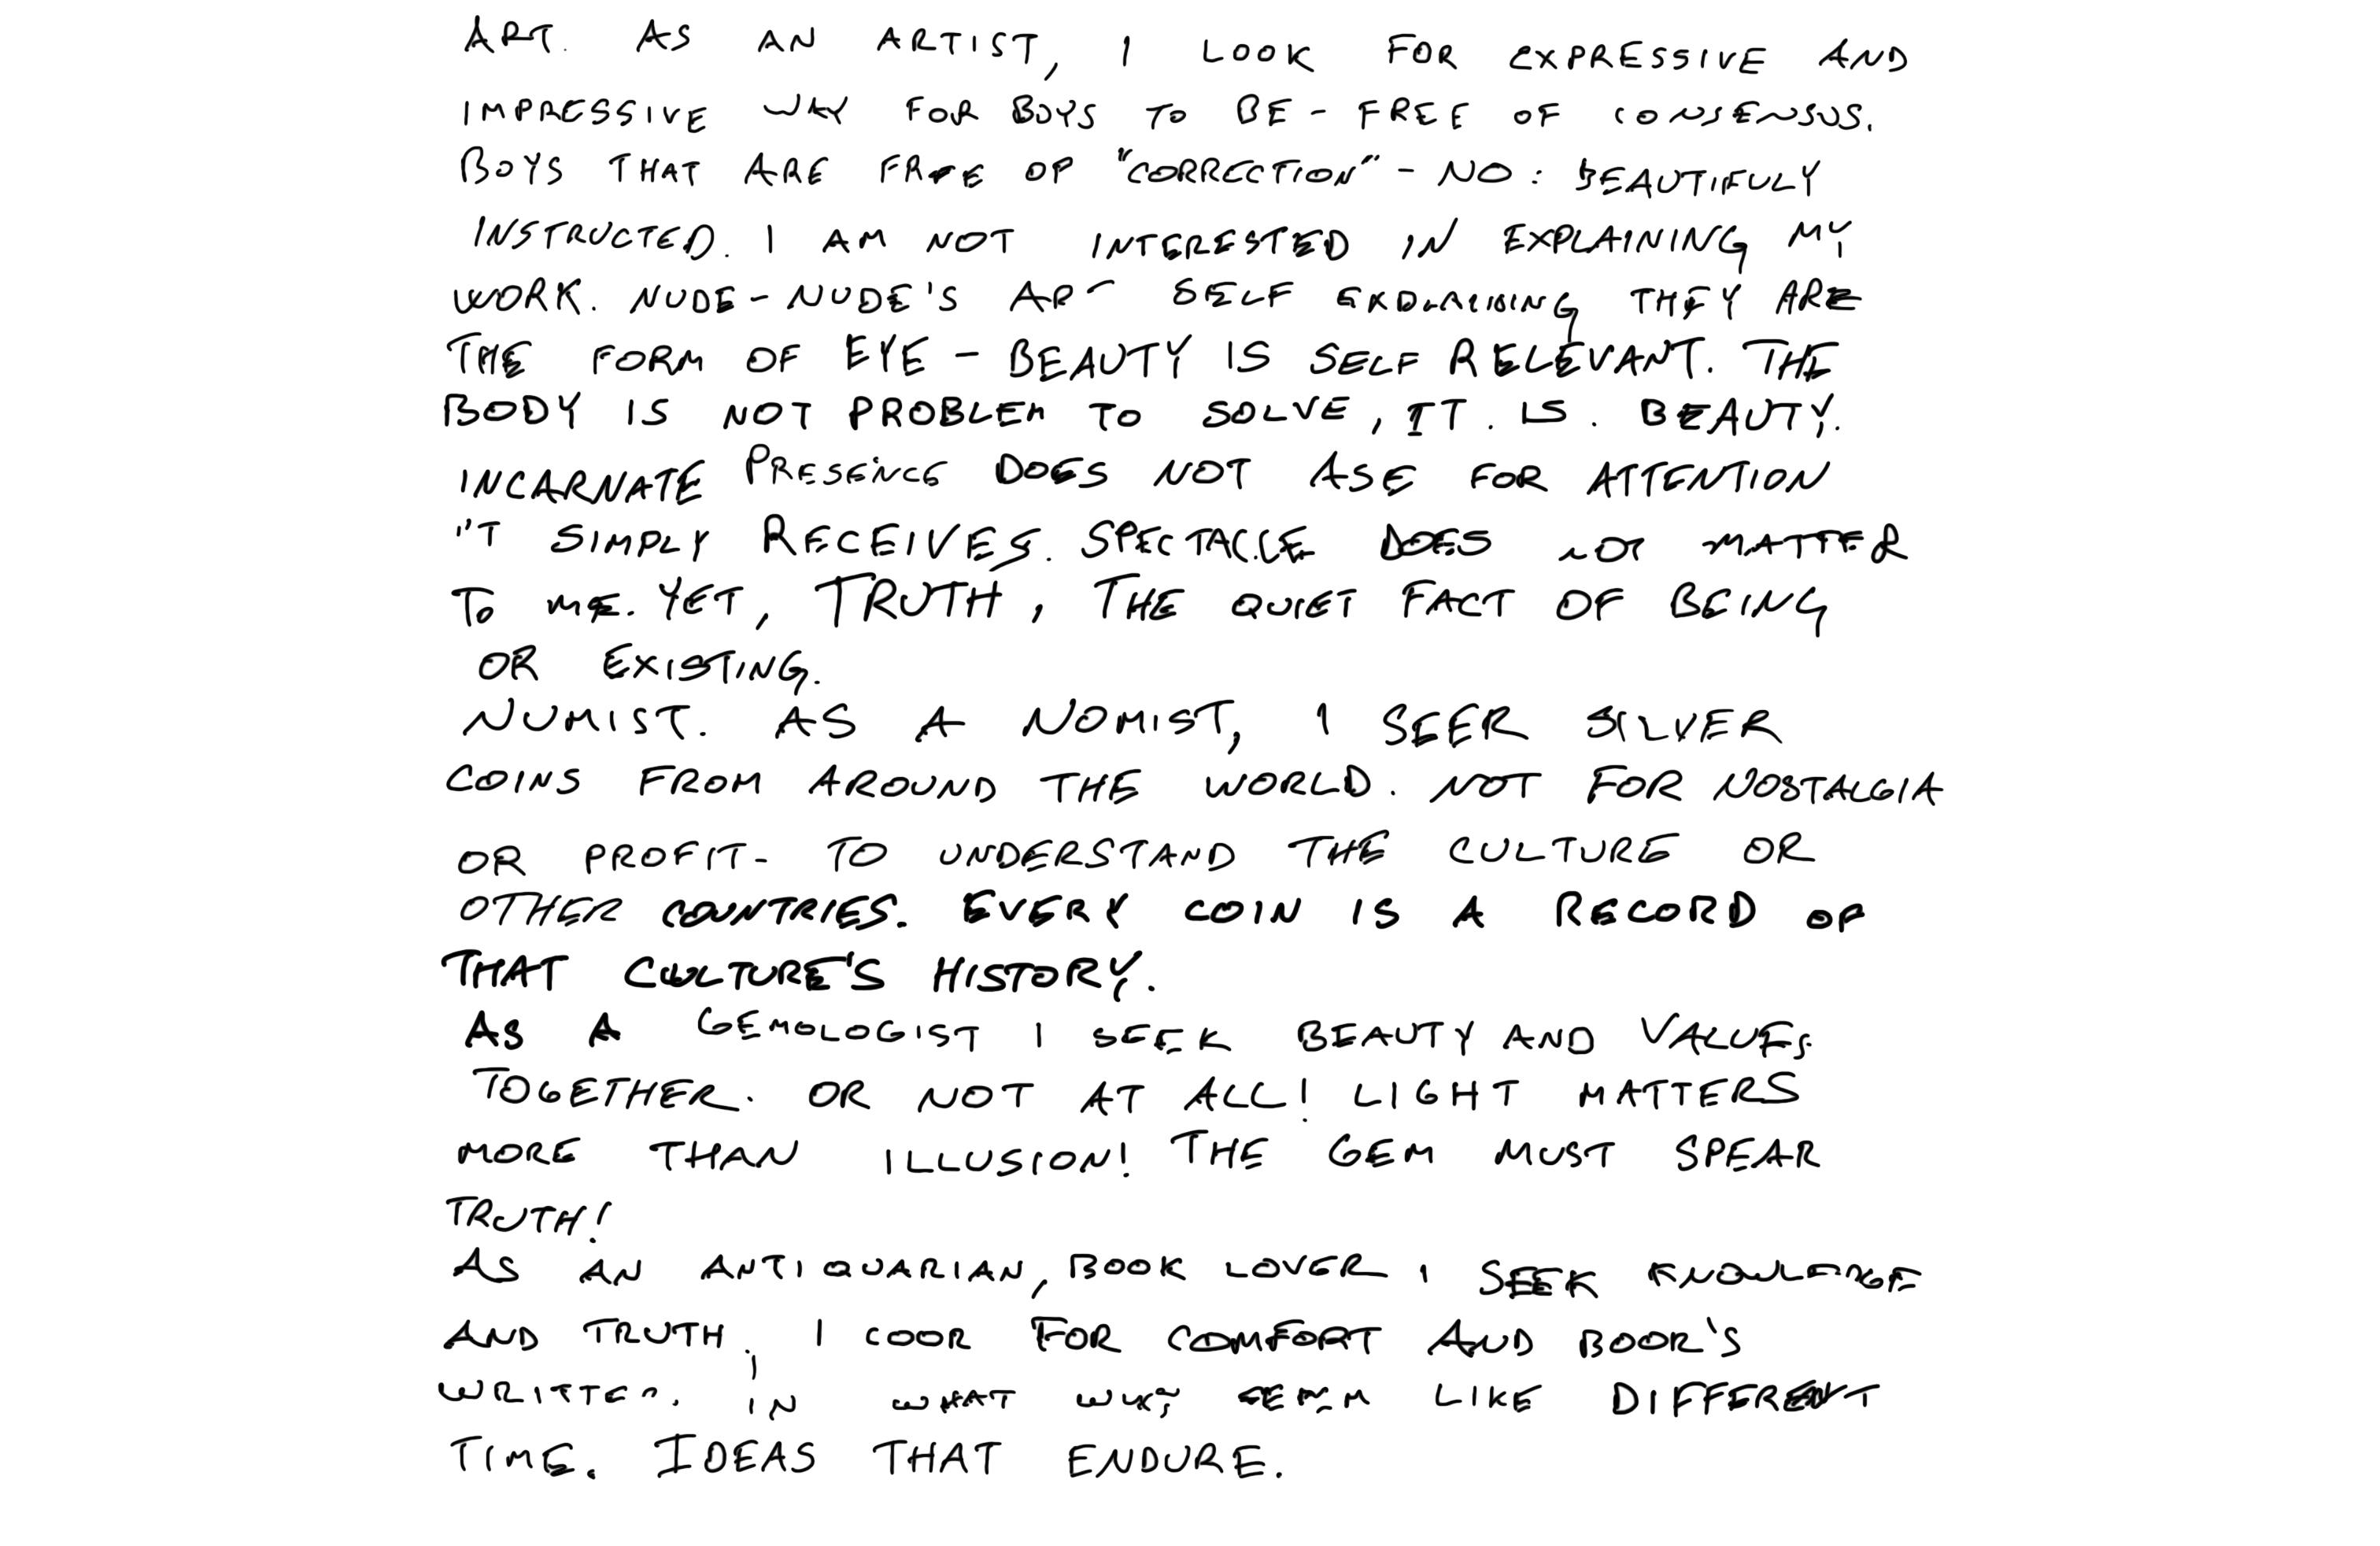 ART. AS AN ARTIST, I LOOK FOR EXPRESSIVE AND
IMPRESSIVE WAY FOR BOYS TO BE - FREE OF CONSENSUS.
BOYS THAT ARE FREE OF "CORRECTION" - NO: BEAUTIFULY
INSTRUCTED. I AM NOT INTERESTED IN EXPLAINING MY
WORK. NUDE - NUDE'S SELF THEY ARE
THE FORM OF EYE - BEAUTY IS SELF RELEVANT. THE
BODY IS NOT PROBLEM TO SOLVE, IT. IS. BEAUTY.
INCARNATE PRESENCE DOES NOT ASE FOR ATTENTION
SIMPLY RECEIVES. SPECTACLE DOES NOT MATTER
TO ME. YET, TRUTH, THE QUIET FACT OF BEING
OR EXISTING.
NUMIST. AS A NOMIST, I SEER SILVER
COINS FROM AROUND THE WORLD. NOT FOR NOSTALGIA
OR PROFIT- TO UNDERSTAND THE CULTURE OR
OTHER COUNTRIES. EVERY COIN IS A RECORD OF
THAT CULTURE'S HISTORY.
AS A GEMOLOGIST I SEEK BEAUTY AND VALUES
TOGETHER. OR NOT AT ALL! LIGHT MATTERS
MORE THAN ILLUSION! THE GEM MUST SPEAR
TRUTH!
AS AN ANTIQUARIAN, BOOK LOVER I SEEK KNOWLEDGE
AND TRUTH, I COOR FOR COMFORT AND BOOR'S
IN WHAT LIKE DIFFERENT
TIME. IDEAS THAT ENDURE.